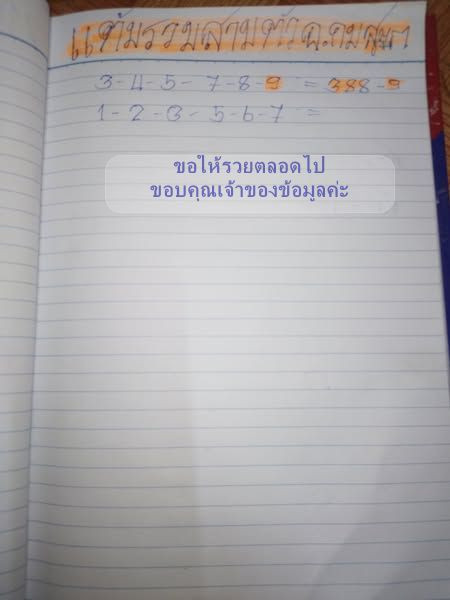 แต้มรวมสามตัว ฉ.คมสุก
3-4-5-7-8-9 = 388-9
1-2-3-5-6-7 =
ขอให้รวยตลอดไป
ขอบคุณเจ้าของข้อมูลค่ะ